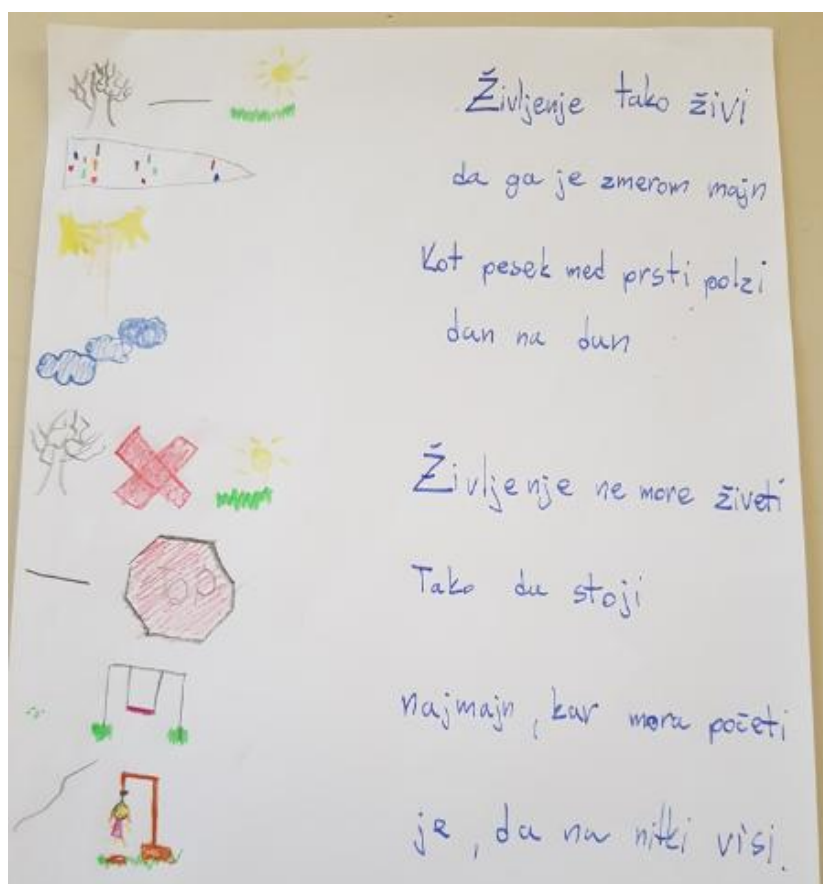 Življenje tako živi
da ga je zmerom majn
Kot pesek med prsti polzi
dan na dan
Življenje ne more živeti
Tako da stoji
najmajn, kar mora početi
je, da na nitki visi.